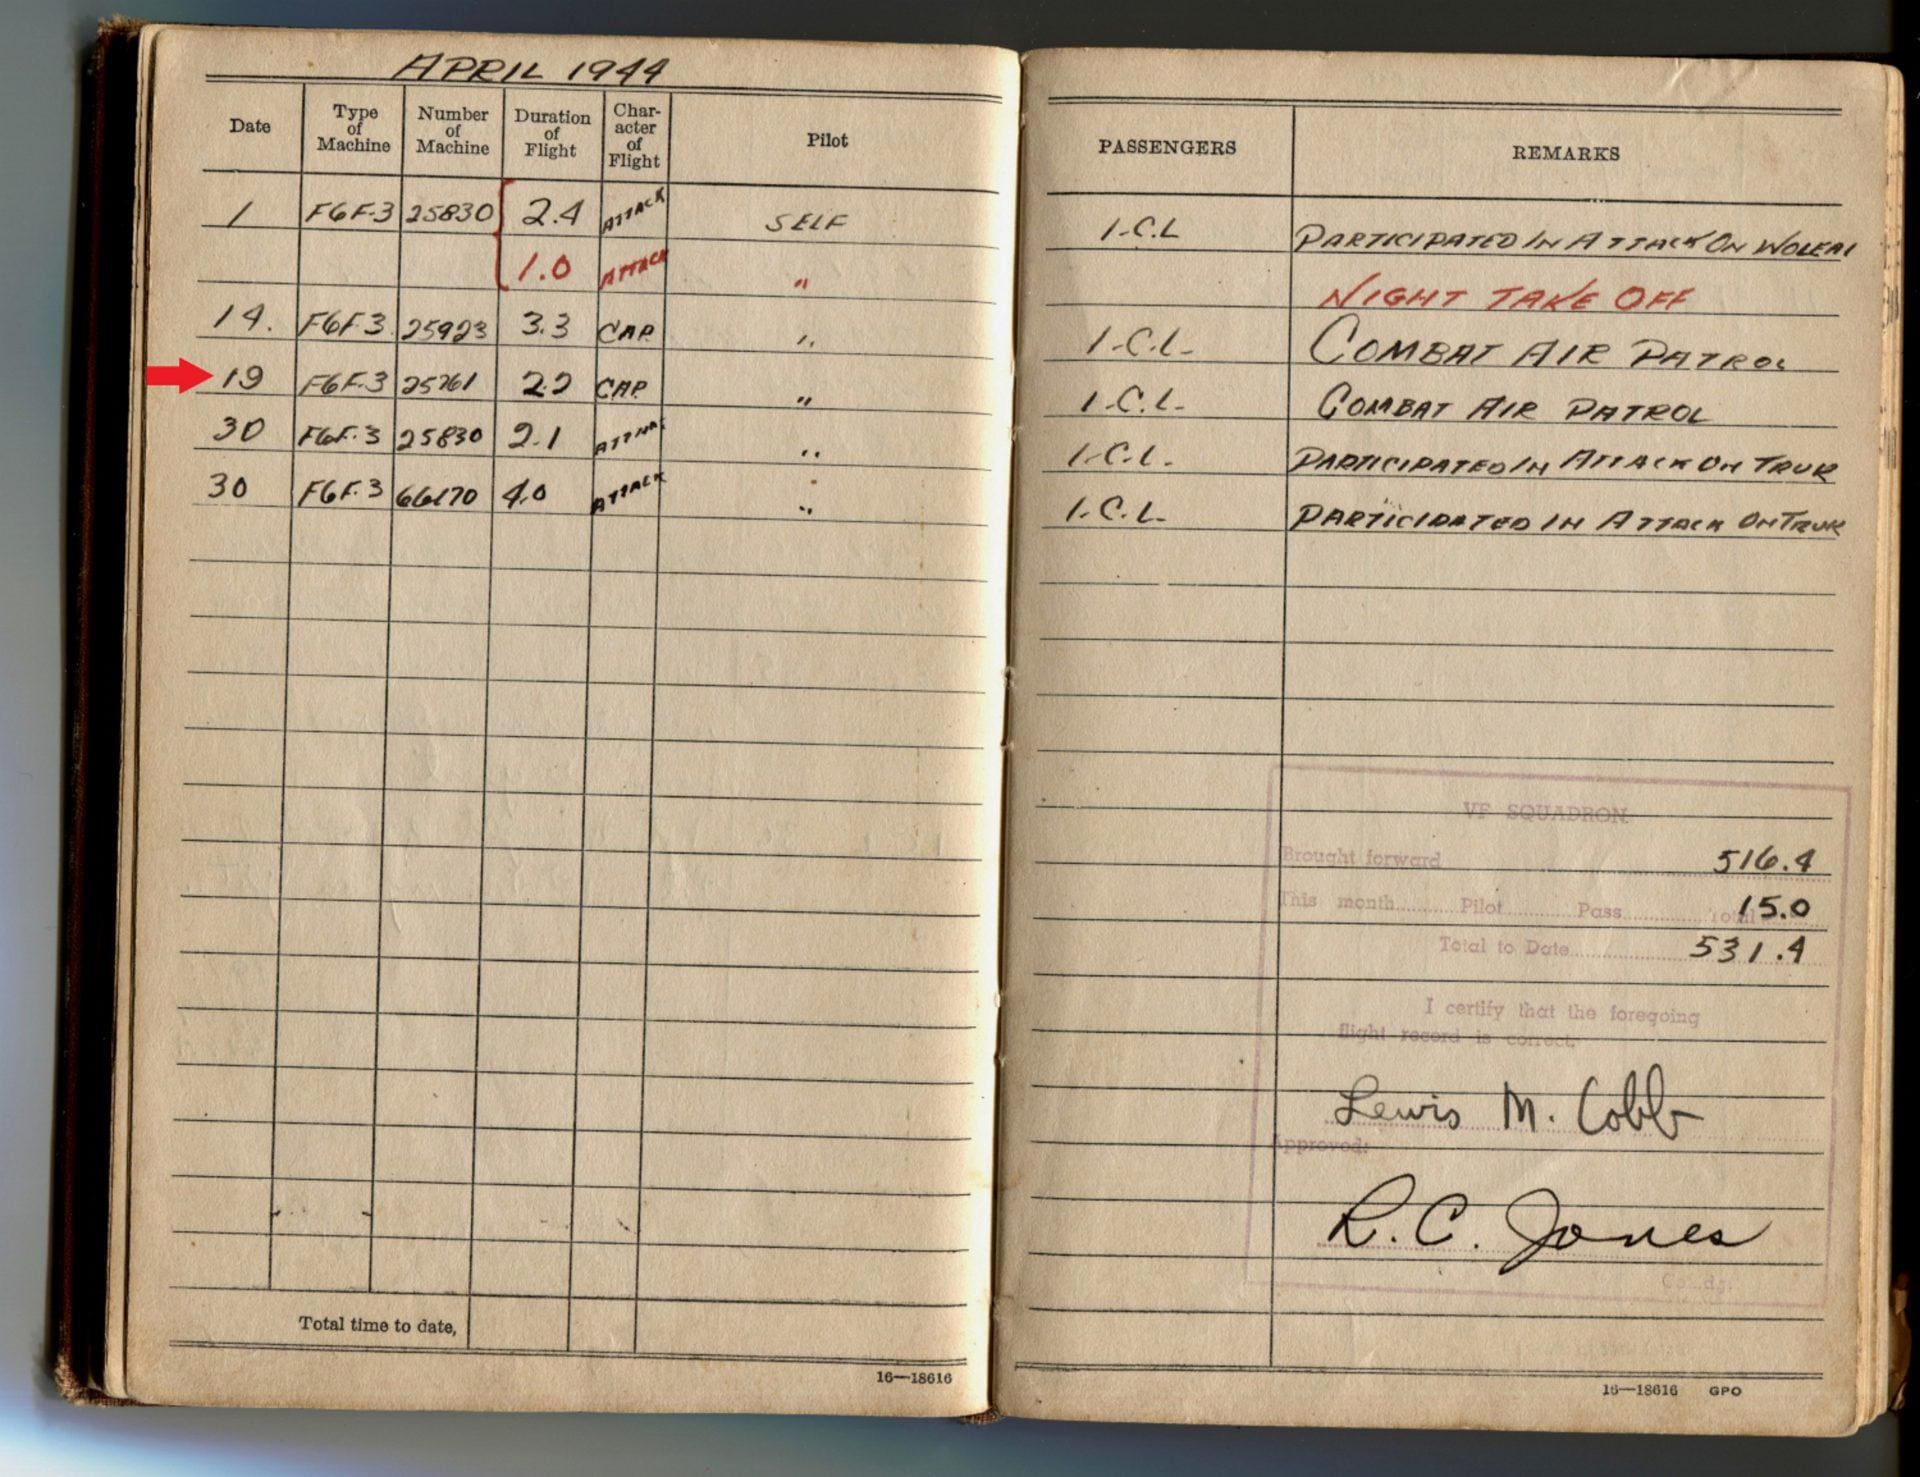 APRIL 1944
Date Type of Machine Number of Machine Duration of Flight Char-acter of Flight Pilot PASSENGERS REMARKS
1 F6F-3 25830 2.4 ATTACK SELF 1-C.L PARTICIPATED IN ATTACK ON WOLEAI
1.0 ATTACK " NIGHT TAKE OFF
14. F6F3 25923 3.3 CAP " 1-C.L- COMBAT AIR PATROL
19 F6F-3 25761 2.2 CAP " 1-C.L- COMBAT AIR PATROL
30 F6F-3 25830 2.1 ATTACK " 1-C.L. PARTICIPATED IN ATTACK ON TRUK
30 F6F-3 66170 4.0 ATTACK " 1.C.L- PARTICIPATED IN ATTACK ON TRUK
VF SQUADRON
Brought forward 516.4
This month Pilot Pass Total 15.0
Total to Date 531.4
I certify that the foregoing
flight record is correct.
Lewis M. Cobb
Approved:
R. C. Jones
Total time to date,
16—18616
16—18616 GPO